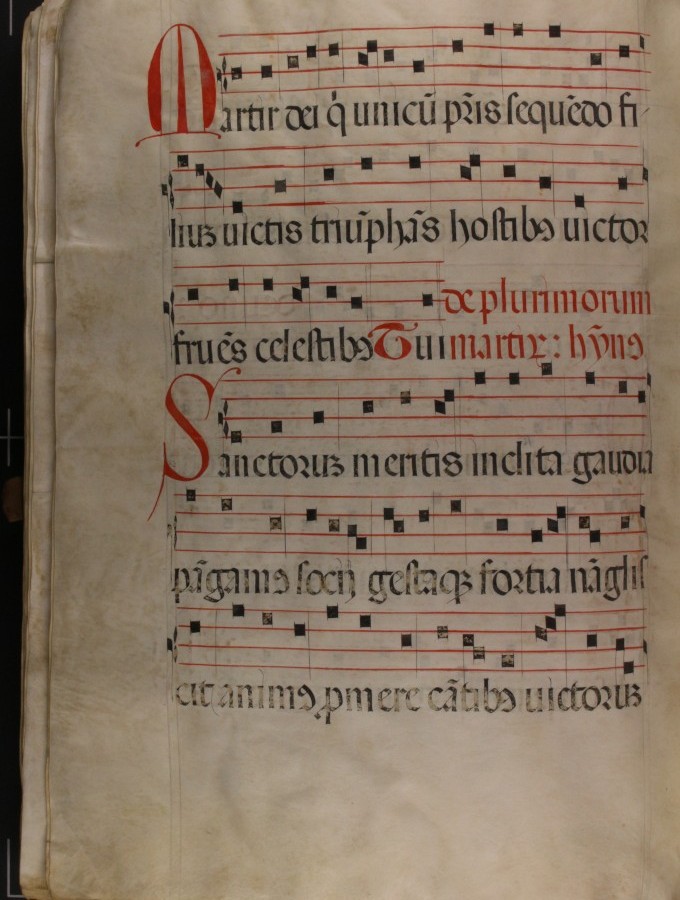 Martir dei q̇ unicū pr̄is sequēdo fi
liuʒ uictis triūphās hostibꝰ uictor
de plurimorum
fruēs celestibꝰ Tui martirꝝ : hỹnꝰ
Sanctoruʒ meritis inclita gaudia
pāgamꝰ socij gestaqʒ fortia nā glis
cit animꝰ ꝓmere cātibꝰ uictoruʒ